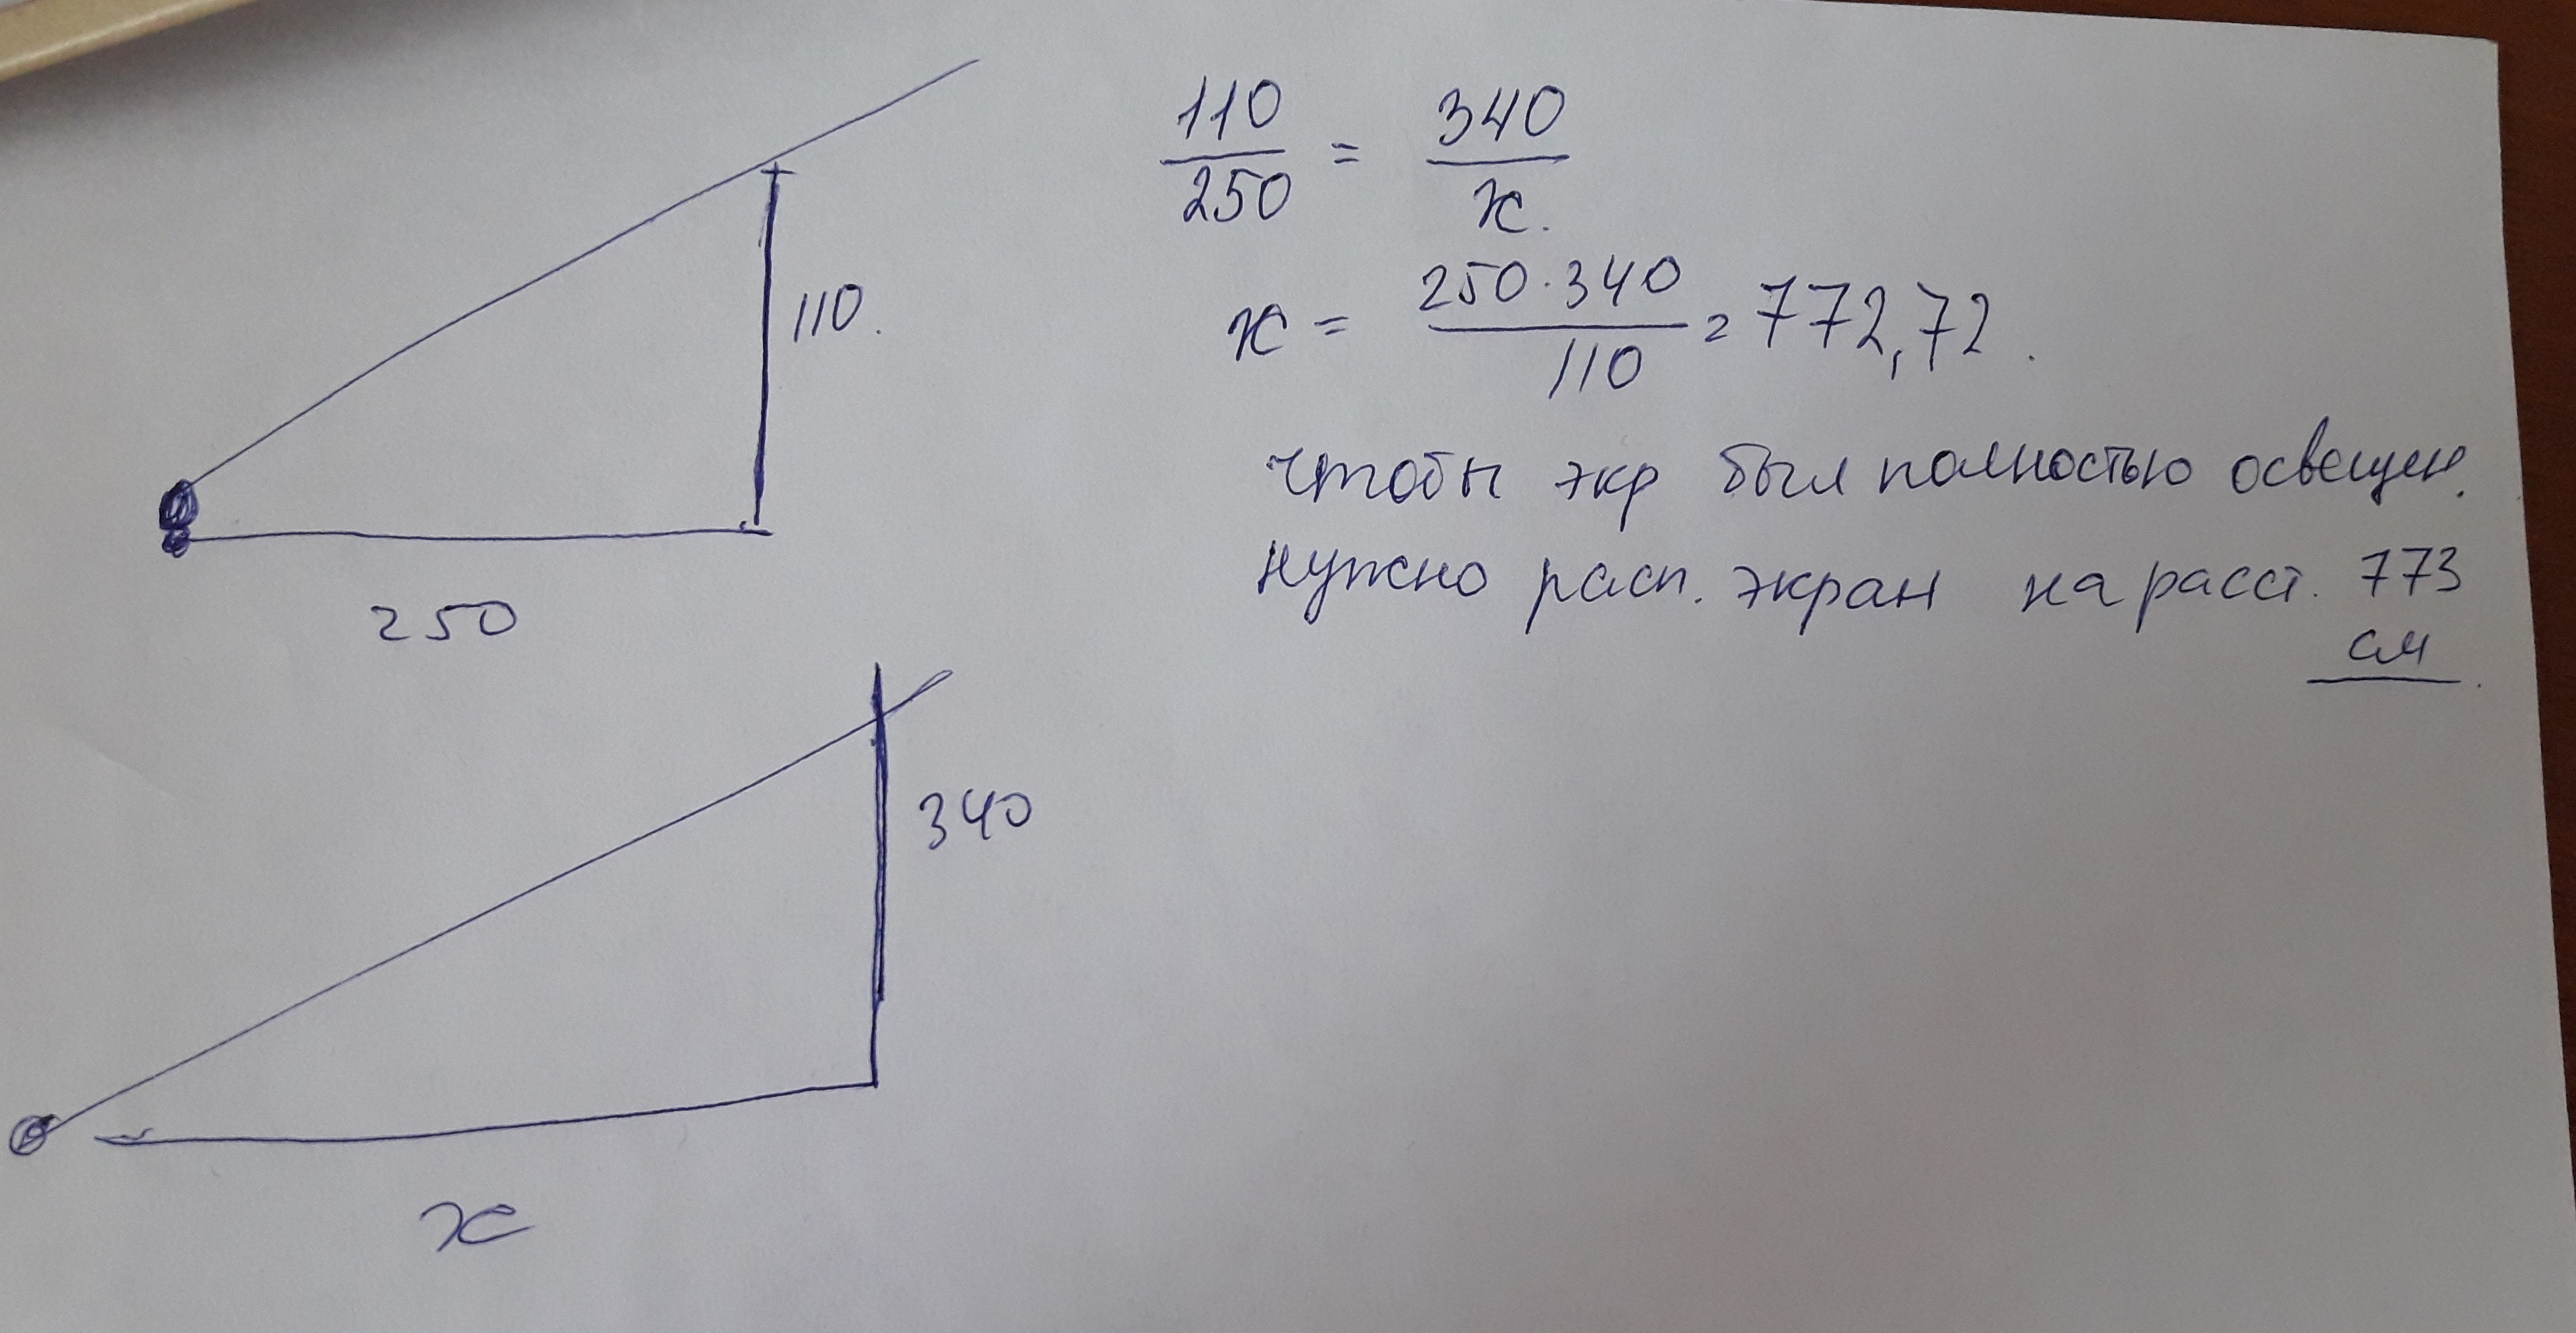 110
250
340
x
110/250 = 340/x.
x = 250·340/110 = 772,72.
чтобы экр был полностью освещен.
нужно расп. экран на расст. 773
см